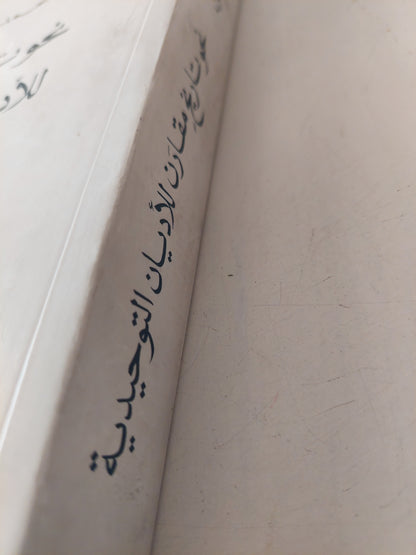 نحو تاريخ مقارن للأديان التوحيدية
نحو
للأد